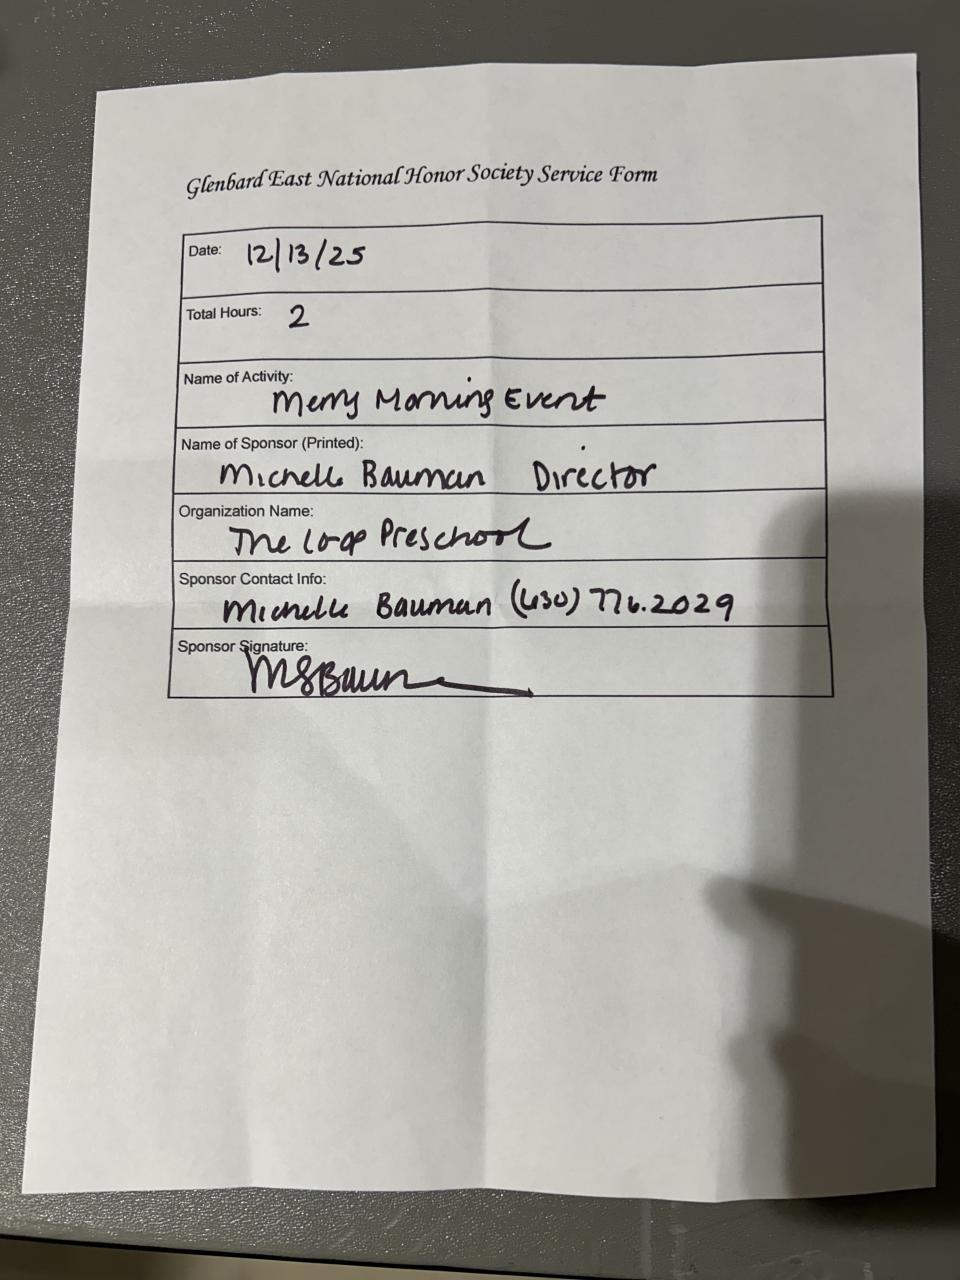 Glenbard East National Honor Society Service Form
Date: 12/13/25
Total Hours: 2
Name of Activity:
Merry Morning Event
Name of Sponsor (Printed):
Michelle Bauman Director
Organization Name:
The Loop Preschool
Sponsor Contact Info:
Michelle Bauman (630) 776.2029
Sponsor Signature:
MSBaum